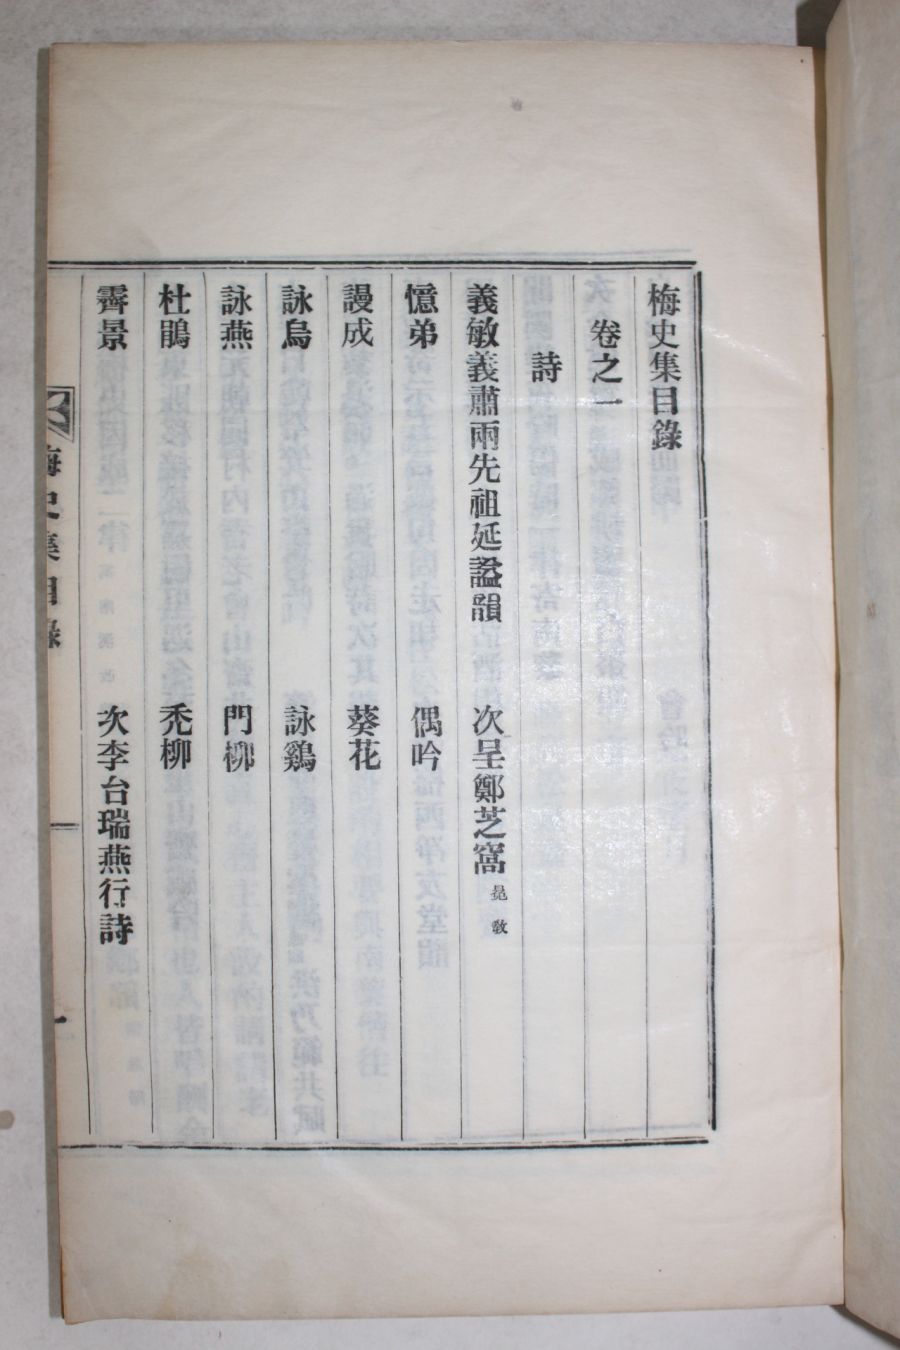 梅史集目錄
卷之一
詩
義敏義肅兩先祖延諡韻 次呈鄭芝窩
憶弟 偶吟
謾成 葵花
詠烏 詠鷄
詠燕 門柳
杜鵑 禿柳
霽景 次李台瑞燕行詩
梅史集目錄
一